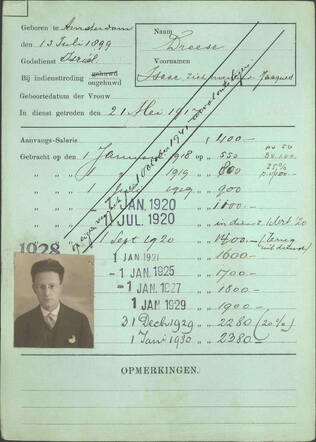 Geboren te Amsterdam
den 13 Juli 1899
Godsdienst Israël.
Bij indiensttreding gehuwd
ongehuwd
Geboortedatum der Vrouw
In dienst getreden den 21 Mei 1917
Naam
Dreese
Voornamen
Isaac Jacques
Aanvangs-Salaris ƒ 400.—
Gebracht op den 1 Januari 1918 op „ 550
„ „ „ 1 „ 1919 „ „ 800
„ „ „ 1 1919 „ „ 900
1 JAN. 1920
1 JUL. 1920 in dienst
1928
1 Sept 1920 „ „ 1400.— (terug
1 JAN 1921 „ „ 1600.—
-1 JAN 1925 „ „ 1700.—
-1 JAN 1927 „ „ 1800.—
1 JAN 1929 „ „ 1900.—
31 Dec 1929 „ „ 2280 (20%)
1 Jan 1930 „ „ 2380.—
OPMERKINGEN.